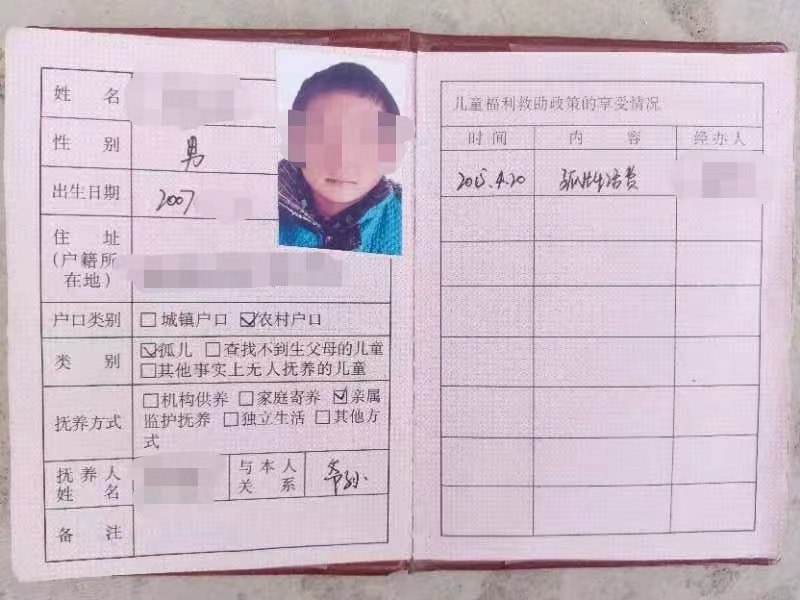 姓名
性别 男
出生日期 2007
住址
(户籍所
在地)
户口类别 □城镇户口 ☑农村户口
类别 ☑孤儿 □查找不到生父母的儿童
□其他事实上无人抚养的儿童
抚养方式 □机构供养 □家庭寄养 ☑亲属
监护抚养 □独立生活 □其他方
式
抚养人
姓名
与本人
关系 爷孙
备注
儿童福利救助政策的享受情况
时间 内容 经办人
2015.4.20 孤儿生活费